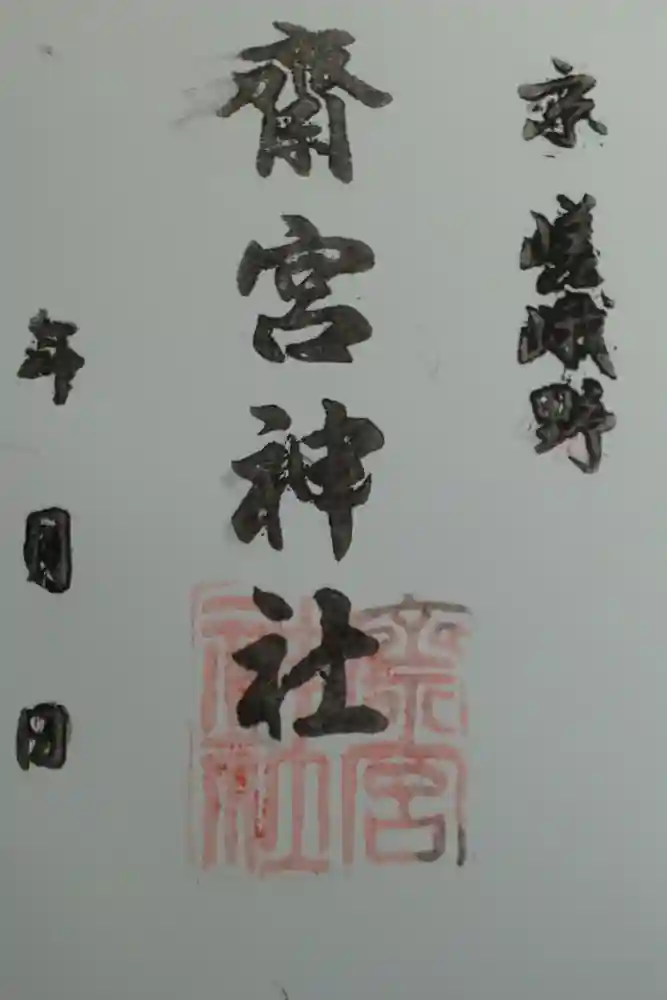 京 嵯峨野
齋宮神社
斎宮
神社
年 月 日